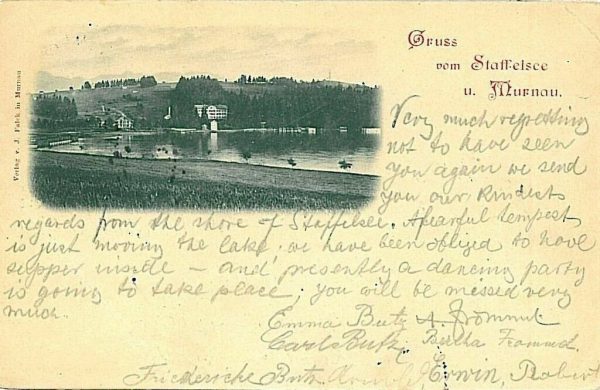 Gruss
vom Staffelsee
u. Murnau.
Verlag v. J. Falck in Murnau
Very much regretting
not to have seen
you again we send
you our kindest
regards from the shore of Staffelsee. A fearful tempest
is just moving the lake. we have been obliged to have
supper inside – and presently a dancing party
is going to take place; you will be missed very
much.
Emma Butz A. Frommel
Carl Butz Bertha Frommel
Friedericke Butz Erwin, Robert